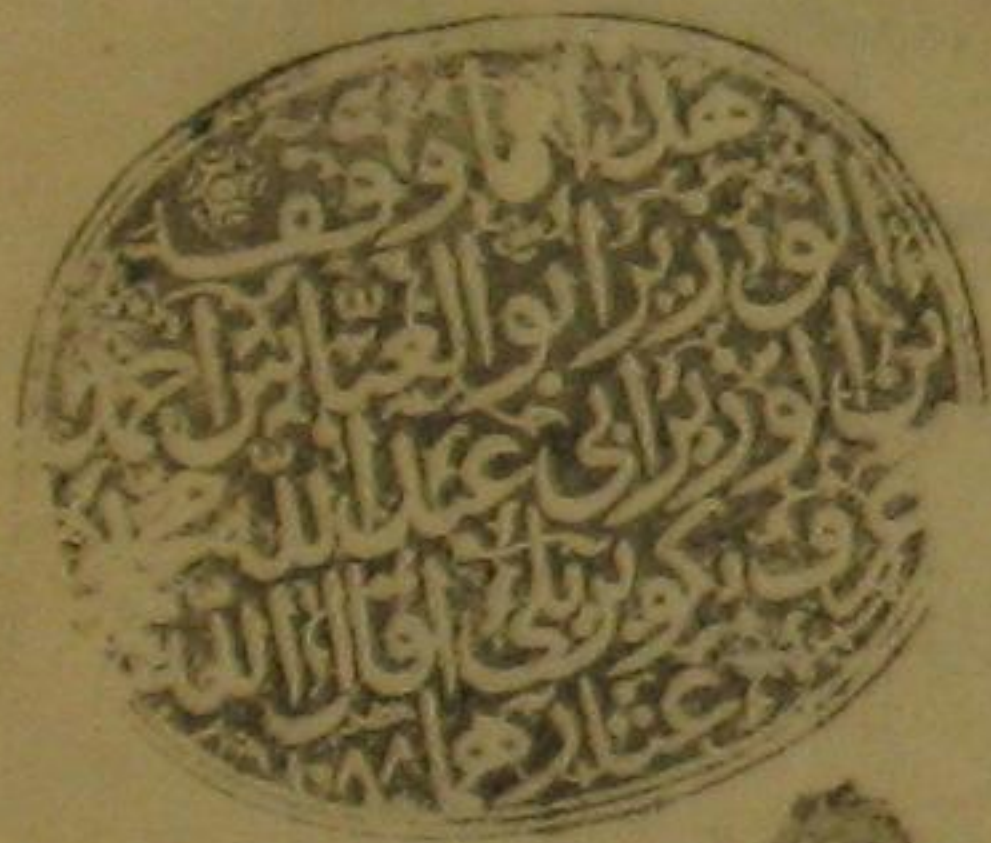 هذا ما وقف
الوزير ابو العباس احمد
بن الوزير ابي عبد الله محمد
عرف بكوبريلي اقال الله
عثارهما
١٠٨٨